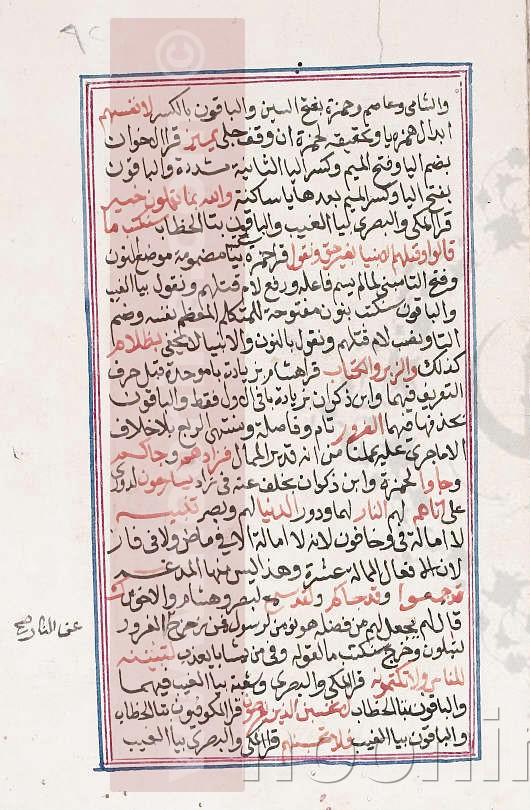 والشامي وعاصم وحمزة بفتح السين والباقون بالكسر لانفسهم
ابدال همزه يا وتحقيقه لحمزة ان وقف جلي يميز قرا الاخوان
بضم اليا وفتح الميم وكسر اليا الثانية مشددة والباقون
بفتح اليا وكسر الميم بعدها يا ساكنة والله بما تعملون خبير
قرا المكي والبصري بيا الغيب والباقون بتا الخطاب سنكتب ما
قالوا وقتلهم الانبيا بغير حق ونقول قرا حمزة بيا مضمومة موضع النون
وفتح التا مبني لما لم يسم فاعله ورفع لام قتلهم ونقول بيا الغيب
والباقون سنكتب بنون مفتوحة للمتكلم المعظم نفسه وضم
التا ونصب لام قتلهم ونقول بالنون والانبيا لا يخفى بظلام
كذلك والزبر والكتاب قرا هشام بزيادة باموحدة قبل حرف
التعريف فيهما وابن ذكوان بزيادة با في الاول فقط والباقون
بحذفها فيهما الغرور تام وفاصلة ومنتهى الربع بلا خلاف
الا ما جرى عليه عملنا من انه قدير الممال فزادهم وجاكم
وجاوا لحمزة وابن ذكوان بخلف عنه في زاد يسارعون لدوري
على اتاهم لهم النار لهما ودور الدنيا لهم وبصر تنبيه
لا امالة في وخافون لانه لا امالة الا في ماض ولا في فاز
لان الافعال الممالة عشرة وهذا ليس منها المدغم ك
قد جمعوا وقد جاكم ولقد سمع لبصر وهشام والاخوين
قال لهم يجعل لهم من فضله هو نومن لرسول فمن زحزح الغرور
لتبلون وخرج سنكتب ما لقوله وفي من يشا بالعذاب لتبيننه
للناس ولا تكتمونه قرا المكي والبصري وشعبة بيا الغيب فيهما
والباقون بتا الخطاب لا تحسبن الذين يفرحون قرا الكوفيون بتا الخطاب
والباقون بيا الغيب فلا تحسبنهم قرا المكي والبصري بيا الغيب